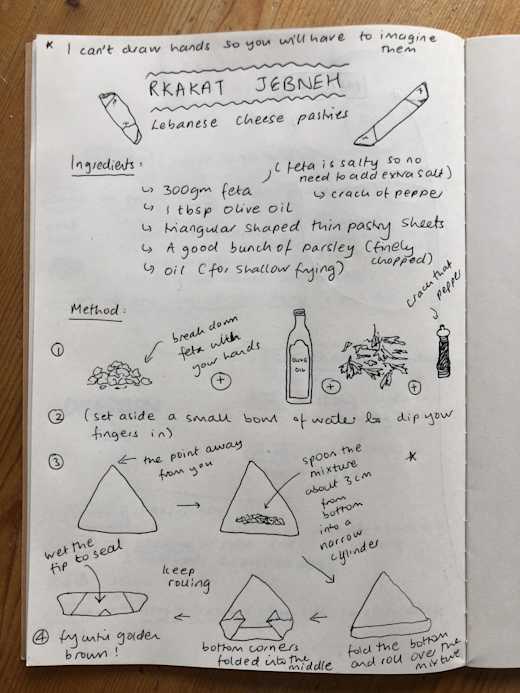 * I can't draw hands so you will have to imagine
them
RKAKAT JEBNEH
Lebanese cheese pastries
Ingredients:
(feta is salty so no
need to add extra salt)
↳ 300gm feta
↳ crack of pepper
↳ 1 tbsp olive oil
↳ triangular shaped thin pastry sheets
↳ A good bunch of parsley (finely
chopped)
↳ oil (for shallow frying)
Method:
crack that
pepper
①
break down
feta with
your hands
+
OLIVE
OIL
+
+
② (set aside a small bowl of water to dip your
fingers in)
③
the point away
from you
spoon the
mixture
about 3cm
from
bottom
into a
narrow
cylinder
*
fold the bottom
and roll over the
mixture
bottom corners
folded into the
middle
keep
rolling
wet the
tip to seal
④ fry until golden
brown!